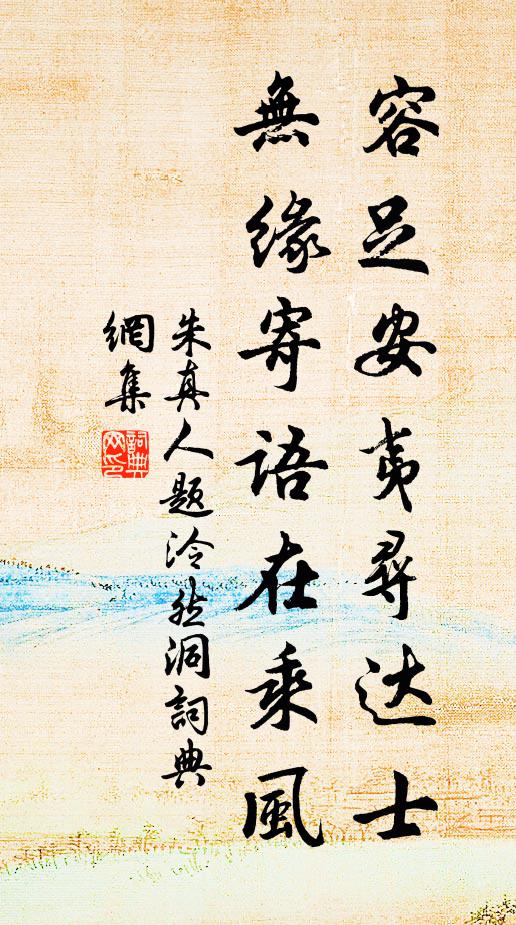 容足安夷尋达士
無緣寄語在乘風
朱真人題泠然洞詞典
網集
詞典
网印